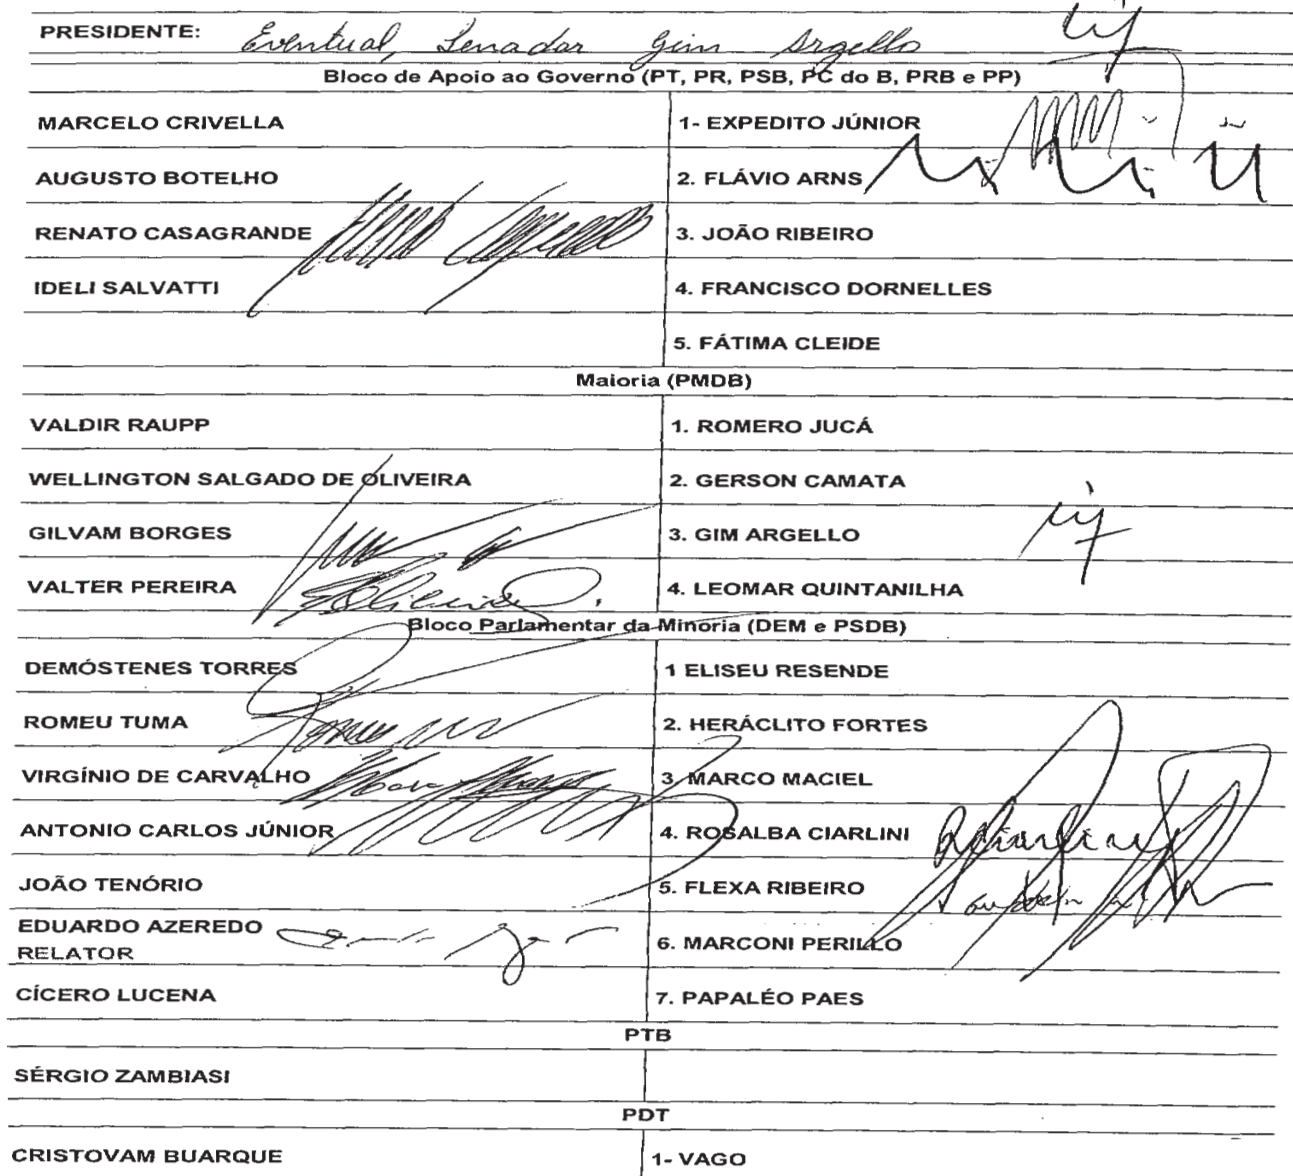 PRESIDENTE: Eventual, Senador Gim Argello
Bloco de Apoio ao Governo (PT, PR, PSB, PC do B, PRB e PP)
MARCELO CRIVELLA 1- EXPEDITO JÚNIOR
AUGUSTO BOTELHO 2. FLÁVIO ARNS
RENATO CASAGRANDE 3. JOÃO RIBEIRO
IDELI SALVATTI 4. FRANCISCO DORNELLES
5. FÁTIMA CLEIDE
Maioria (PMDB)
VALDIR RAUPP 1. ROMERO JUCÁ
WELLINGTON SALGADO DE OLIVEIRA 2. GERSON CAMATA
GILVAM BORGES 3. GIM ARGELLO
VALTER PEREIRA 4. LEOMAR QUINTANILHA
Bloco Parlamentar da Minoria (DEM e PSDB)
DEMÓSTENES TORRES 1 ELISEU RESENDE
ROMEU TUMA 2. HERÁCLITO FORTES
VIRGÍNIO DE CARVALHO 3. MARCO MACIEL
ANTONIO CARLOS JÚNIOR 4. ROSALBA CIARLINI
JOÃO TENÓRIO 5. FLEXA RIBEIRO
EDUARDO AZEREDO
RELATOR 6. MARCONI PERILLO
CÍCERO LUCENA 7. PAPALÉO PAES
PTB
SÉRGIO ZAMBIASI
PDT
CRISTOVAM BUARQUE 1- VAGO